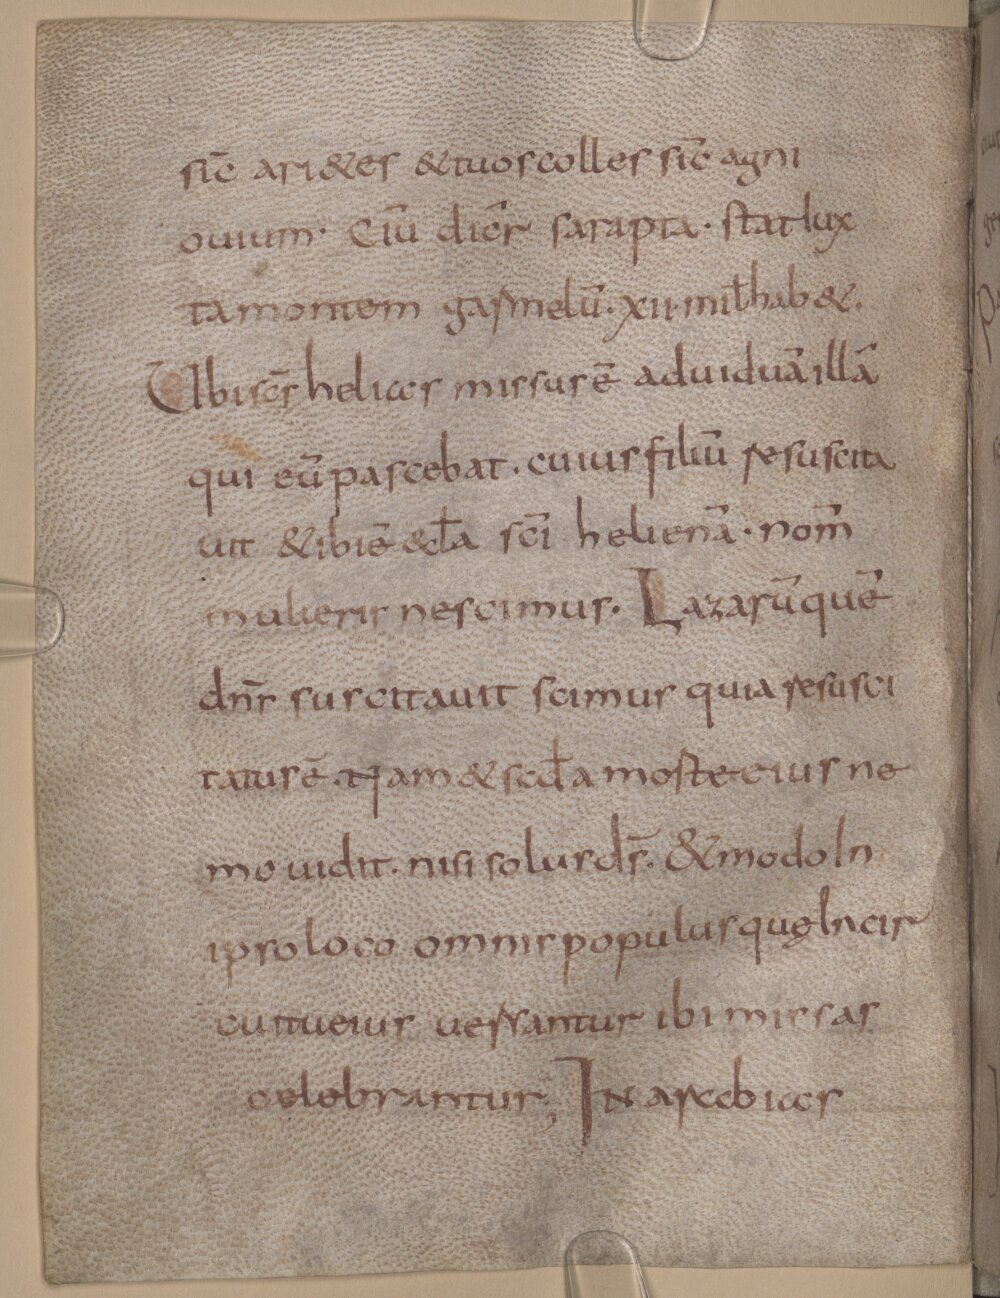 sic̄ ari&es &tuos colles sic̄ agni
ouium · Ciū dicr̄ sarapta · stat lux
ta montem garmelū · xii mil̄ hab& .
Ubi sc̄s helias missus ē ad uiduā illā
qui eū pascebat · cuius filiū resuscita
uit & ibi ē &cl̄a sc̄i helie nā · nom̄
mulieris nescimus · Lazarū quē
dn̄s suscitauit scimus quia resusci
tatus ē · Nam & scd̄a morte eius ne
mo uidit · nisi solus ds̄ · & modo In
ipso loco omnis populus quę In cir
cuitu eius uersantur ibi missas
celebrantur; IN arabias